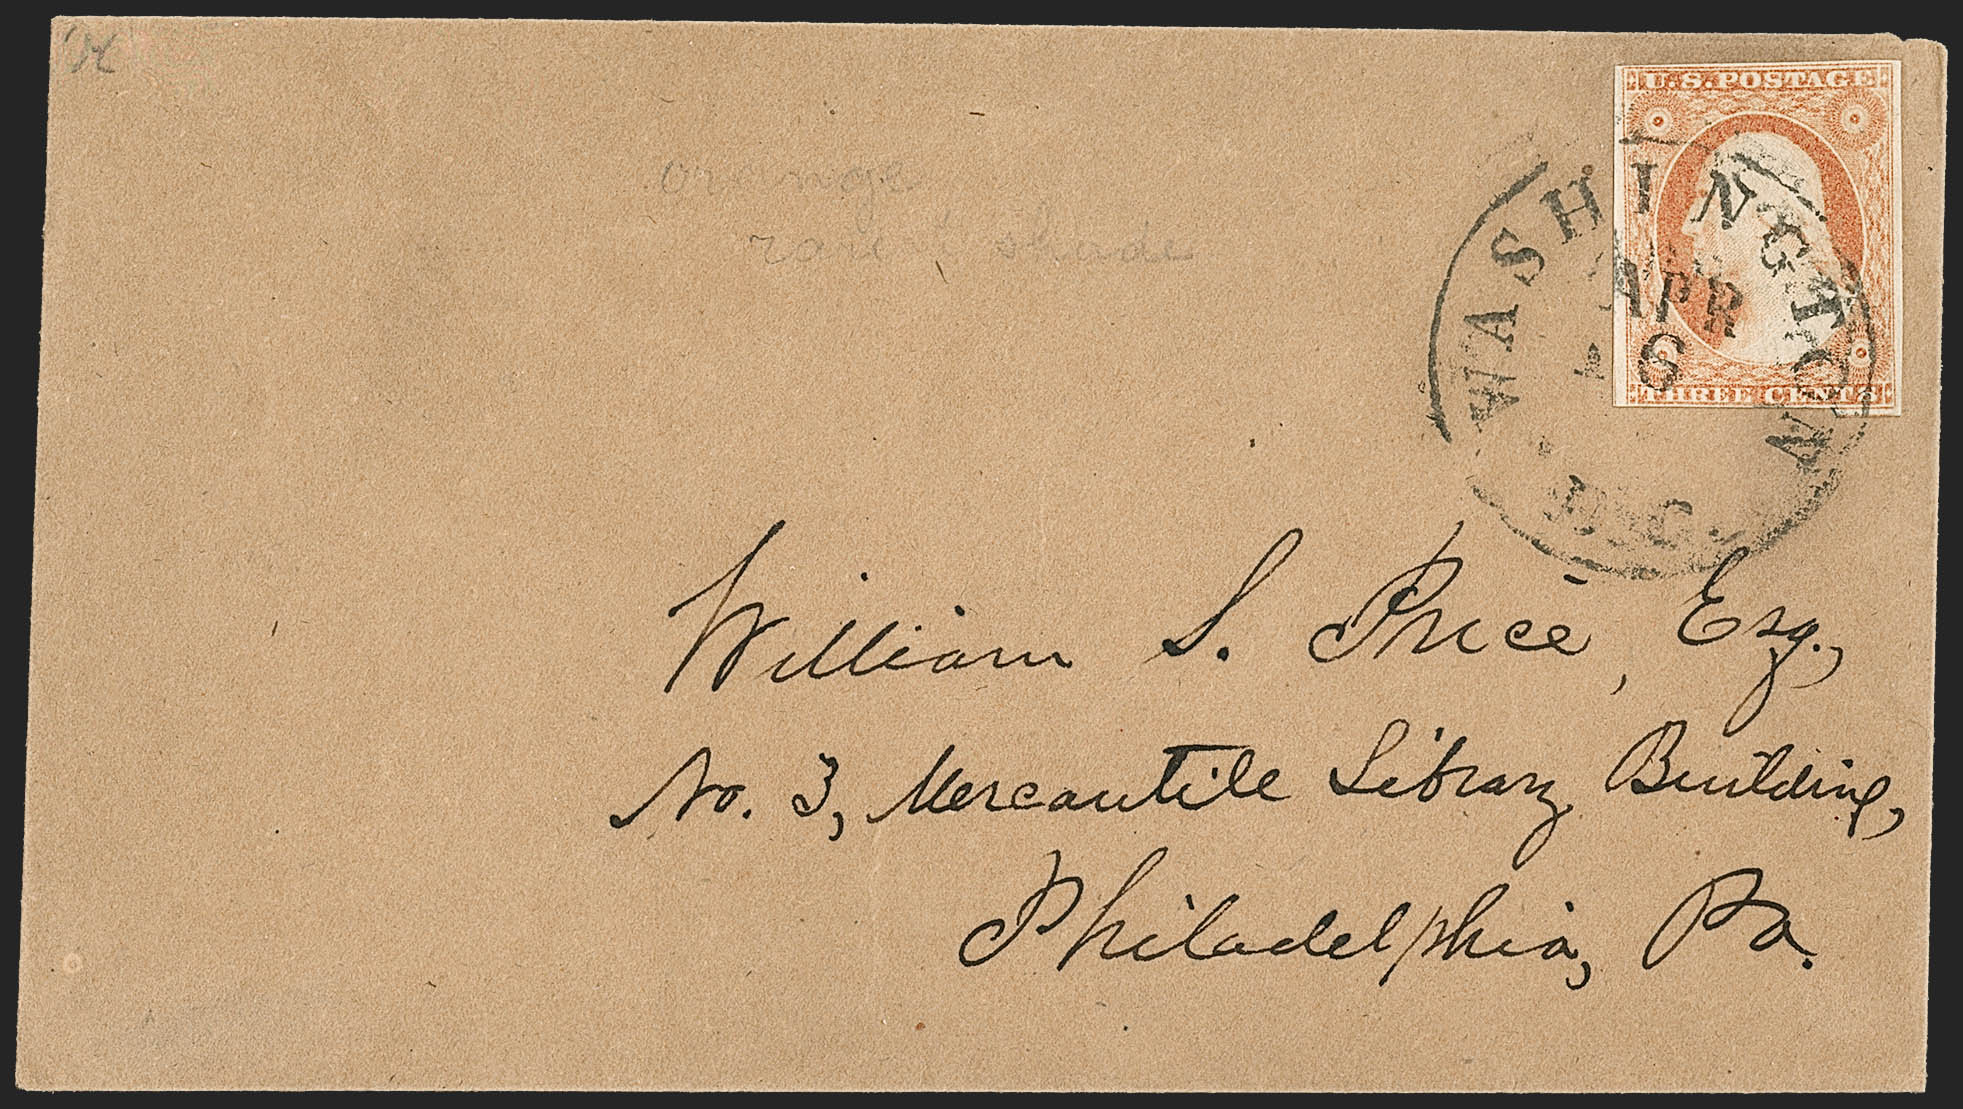 U.S. POSTAGE
THREE CENTS
WASHINGTON
APR
6
D.C.
orange
shade
William S. Price, Esq.,
No. 3, Mercantile Library Building,
Philadelphia, Pa.